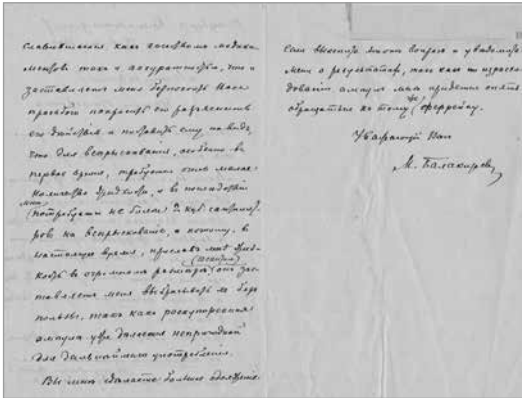 славившіяся, какъ качествомъ медика-
ментовъ такъ и аккуратностью, что и
заставляетъ меня безпокоить Васъ
просьбою попросить его разъяснить
его
и поставить ему на видъ,
что для вспрыскиванія, особенно въ
первое время, требуется очень малое
количество жидкости, и въ
мнѣ
потребуется не болѣе куб. сантимет-
ровъ на вспрыскиваніе, а потому, въ
настоящую время, приславъ мнѣ жид-
кость въ огромномъ онъ зас-
тавляетъ меня выбрасывать ее безъ
пользы, такъ какъ раскупоренная
ампула уже дѣлается непригодной
для дальнѣйшаго употребленія.
Вы мнѣ сдѣлаете большое одолженіе
если выясните этотъ вопросъ и увѣдомите
меня о результатѣ, такъ какъ по израсхо-
дованіи ампулъ мнѣ придется опять
обращаться къ тому же Феррейну.
Уважающій Васъ
М. Балакиревъ